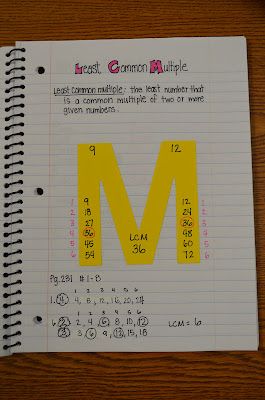 Least Common Multiple
Least common multiple: the least number that
is a common multiple of two or more
given numbers.
9 12
1 9 12 1
2 18 24 2
3 27 36 3
4 36 48 4
5 45 60 5
6 54 72 6
LCM
36
Pg. 231 # 1-8
1 2 3 4 5 6
1. 4 4, 8, 12, 16, 20, 24
1 2 3 4 5 6
6. 2 2, 4, 6, 8, 10, 12 LCM = 6
3 3, 6, 9, 12, 15, 18